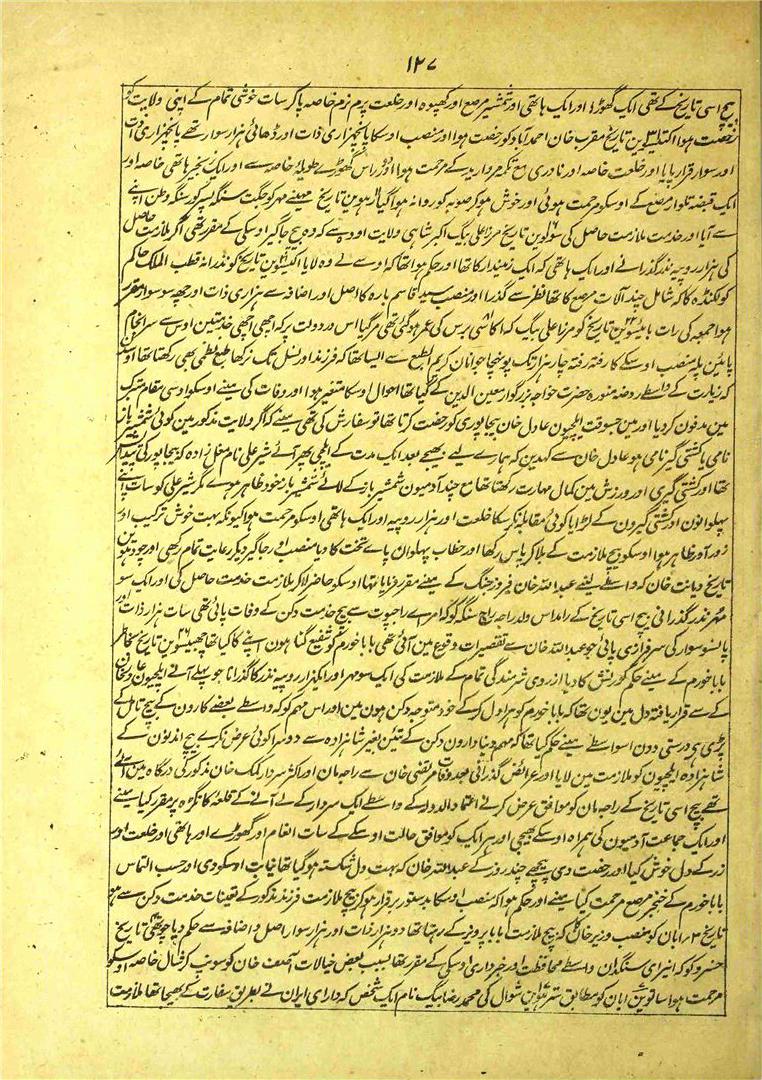 ۱۲۷
بیچ اسی تاریخ کے تھی ایک گھوڑا اور ایک ہاتھی اور شمشیر مرصع اور کھپوہ اور خلعت پرم نرم خاصہ پاکر سات خوشی تمام کے اپنی ولایت کو
رخصت ہوا اکتیسوین تاریخ مقرب خان احمدآباد کو رخصت ہوا اور منصب اوسکا پانچہزاری ذات اور ڈھائی ہزار سوار تھے پانچہزاری ذات
اور سوار قرار پایا اور خلعت خاصہ اور نادری مع تکمہ مروارید کے مرحمت ہوا اور راس گھوڑے طویلہ خاصہ سے اور ایک زنجیر ہاتھی خاصہ اور
ایک قبضہ تلوار مرصع کے اوسکو مرحمت ہوئی اور خوش ہوکر صوبہ کو روانہ ہوا گیارہوین تاریخ مہینے مہر کو جگت سنگہ پسر کنور سنگہ وطن اپنے
سے آیا اور خدمت ملازمت حاصل کی سولوین تاریخ مرزا علی بیگ اکبر شاہی ولایت اودہ سے کہ وہ بیچ جاگیر اوسکی کے مقرر تھی آکر ملازمت حاصل
کی ہزار روپیہ نذر گذرانے اور ایک ہاتھی کہ ایک زمیندار کا تھا اور حکم ہوا تھا کہ اوس سے لے وہ لایا اکیسوین تاریخ کو نذرانہ قطب الملک حاکم
گولکنڈہ کا کہ شامل چند آلات مرصع کا تھا نظر سے گذرا اور منصب سید قاسم بارہ کا اصل اور اضافہ سے ہزاری ذات اور چھہ سو سوار مقرر
ہوا جمعہ کی رات بائیسوین تاریخ کو مرزا علی بیگ کہ اکاسی برس کی عمر ہوگئی تھی مرگیا اس دردولت پر کہ اچھی اچھی خدمتین اوس سے سرانجام
پائین پلہ منصب اوسکے کا رفتہ رفتہ چار ہزار تک پہونچا جوانان کریم الطبع سے ایسا تھا کہ فرزند اور نسل تک نرکھا طبع نظمی بھی رکھتا تھا اوسدن
کہ زیارت کے واسطے روضہ منورہ حضرت خواجہ بزرگوار معین الدین کے گیا تھا احوال اوسکا متغیر ہوا اور وفات کی مینے اوسکو اوسی مقام متبرک
مین مدفون کردیا اور مین جسوقت ایلچیون عادل خان بیجاپوری کو رخصت کرتا تھا تو سفارش کی تھی مینے کہ اگر ولایت مذکور مین کوئی شمشیر باز
نامی یا کشتی گیر نامی ہو عادل خان سے کہدین کہ ہمارے لیے بھیجے بعد ایک مدت کے ایلچی پھر آئے شیر علی نام مغل زادہ کو بیجاپور کی پیدایش
تھا اور کشتی گیری اور ورزش مین کمال مہارت رکھتا تھا مع چند آدمیون شمشیر باز کے لائے شمشیر باز خود ظاہر ہوے مگر شیر علی کو سات اپنے
پہلوانون اور کشتی گیرون کے لڑایا کوئی مقابلہ نکرسکا خلعت اور ہزار روپیہ اور ایک ہاتھی اوسکو مرحمت ہوا کیونکہ بہت خوش ترکیب اور
زورآور ظاہر ہوا اوسکو بیچ ملازمت کے بلاکر پاس رکھا اور خطاب پہلوان پاے تخت کا دیا منصب اور جاگیر دیکر رعایت تمام رکھی اور چودہوین
تاریخ دیانت خان کہ واسطے لینے عبداللہ خان فیروز جنگ کے مینے مقرر فرمایا تھا اوسکو حاضر لاکر ملازمت خدمت حاصل کی اور ایک سو
مہر نذر گذرانی بیچ اسی تاریخ کے رامداس ولد راجہ راج سنگہ کو کہ امرے راجپوت سے بیچ خدمت دکن کے وفات پائی تھی سات ہزار ذات اور
پانسو سوار کی سرفرازی پائی جو عبداللہ خان سے تقصیرات وقوع مین آئی تھی بابا خورم کو شفیع گناہون اپنے کا کیا تھا چھبیسوین تاریخ خاطر
بابا خورم کے مینے حکم کورنش کا دیا از روی شرمندگی تمام کے ملازمت کی ایک سو مہر اور ایکہزار روپیہ نذر کا گذرانا جو پہلے آنے ایلچیون عادلخان
کے سے قرار یافتہ دل مین یون تھا کہ بابا خورم کو ہراول کرکے خود متوجہ دکن ہون مین اور اس مہم کو کہ واسطے بعضے کارون کے بیچ تامل کے
پڑی ہی درستی دون اسواسطے مینے حکم کیا تھا کہ مہم دنیادارون دکن کے تئین بغیر شاہزادہ سے دوسرا کوئی عرض نکرے بیچ اندنون کے
شاہزادہ ایلچیون کو ملازمت مین لایا اور عرائض گذرانی بعد وفات مرتضی خان سے راجہ مان اور اکثر سردار کمک خان مذکور کی درگاہ مین آئے
تھے بیچ اسی تاریخ کے راجہ مان کو موافق عرض کرنے اعتماد الدولہ کے واسطے ایک سردار کے لے آنے کے قلعہ کانگڑہ پر مقرر کیا مینے
اور ایک جماعت آدمیون کی ہمراہ اوسکے بھیجی اور ہر ایک کو موافق حالت اوسکے کے سات انعام اور گھوڑے اور ہاتھی اور خلعت اور
زر کے دل خوش کیا اور رخصت دی پیچھے چند روز کے عبداللہ خان کہ بہت دل شکستہ ہوگیا تھا اوسکو دی اور حسب التماس
بابا خورم کے خنجر مرصع مرحمت کیا مینے اور حکم ہوا کہ منصب اوسکا بدستور برقرار ہوکر بیچ ملازمت فرزند مذکور کے تعینات خدمت دکن سے ہو
تاریخ ۳ آبان کو منصب وزیر خان کا کہ بیچ ملازمت بابا پرویز کے رہتا تھا دو ہزار ذات اور ہزار سوار اصل و اضافہ سے حکم دیا چوتھی تاریخ
خسرو کو کہ انیرای سنگدلن واسطے محافظت اور خبرداری اوسکی کے مقرر تھا بسبب بعض خیالات آصف خان کو سونپ کر شال خاصہ اوسکو
مرحمت ہوا ساتوین آبان کو مطابق سترہوین شوال کی محمد رضا بیگ نام ایک شخص کہ دارای ایران نے بطریق سفارت کے بھیجا تھا ملازمت